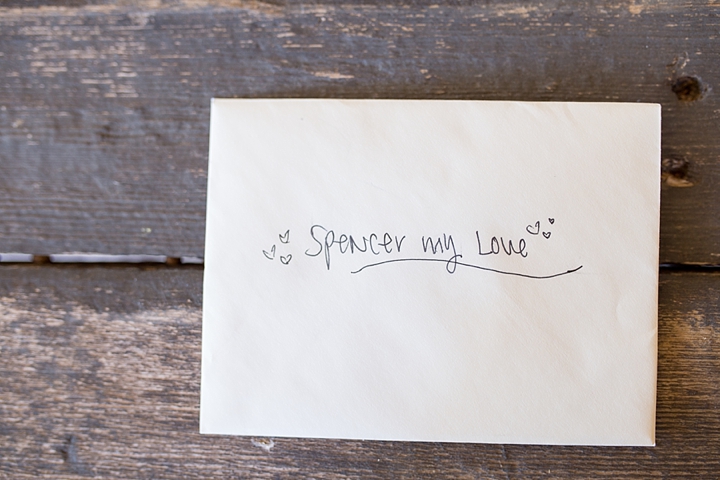 Spencer my Love